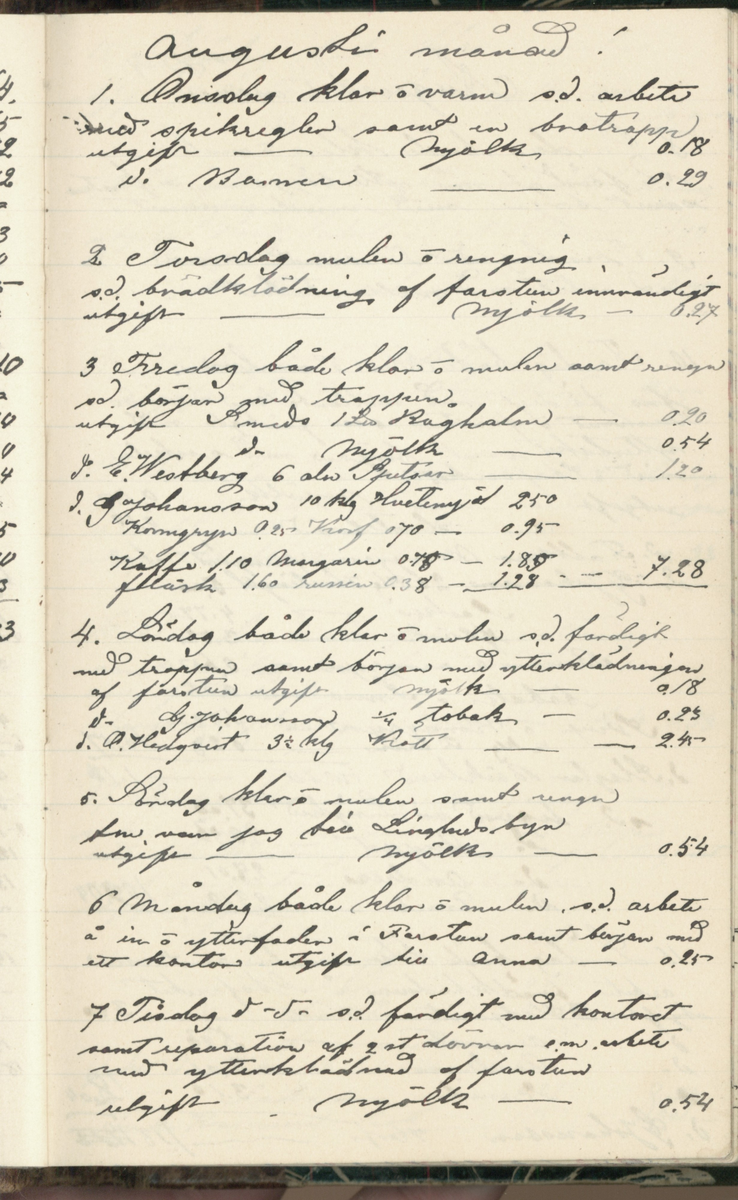 Augusti månad!
1. Onsdag klar ö varm s.d. arbete
med spikregler samt en brotrapp
utgift — Mjölk 0.18
d. Barnen — 0.29
2 Torsdag mulen ö rengnig
s.d. brädklädning af farstun innvändigt
utgift — Mjölk — 0.27
3 Fredag både klar ö mulen samt rengn
s.d. början med trappen
utgift Smeds 1 Råghalm — 0.20
d- Mjölk — 0.54
d. E. Westberg 6 aln — 1.20
d. G Johansson 10 kg Hvetemjöl 250
Korngryn 0.25 Korf 070 — 0.95
Kaffe 1.10 Margarin 0.75 — 1.85
fläsk 1.60 russin 0.38 — 1.28 — 7.28
4. Lördag både klar ö mulen s.d. färdigt
med trappen samt början med ytterklädningen
af farstun utgift Mjölk — 0.18
d- G. Johansson ¼ tobak — 0.23
d. Hedqvist 3½ kg Kött — 2.45
5. Söndag klar ö mulen samt rengn
fm var jag till byn
utgift — Mjölk — 0.54
6 Måndag både klar ö mulen. s.d. arbete
å in ö ytterfoder i Farstun samt början med
ett kontor utgift till Anna — 0.25
7 Tisdag d-d- s.d färdigt med kontoret
samt reparation af 2 st dörrar e.m. arbete
med ytterklädnad af farstun
utgift Mjölk — 0.54